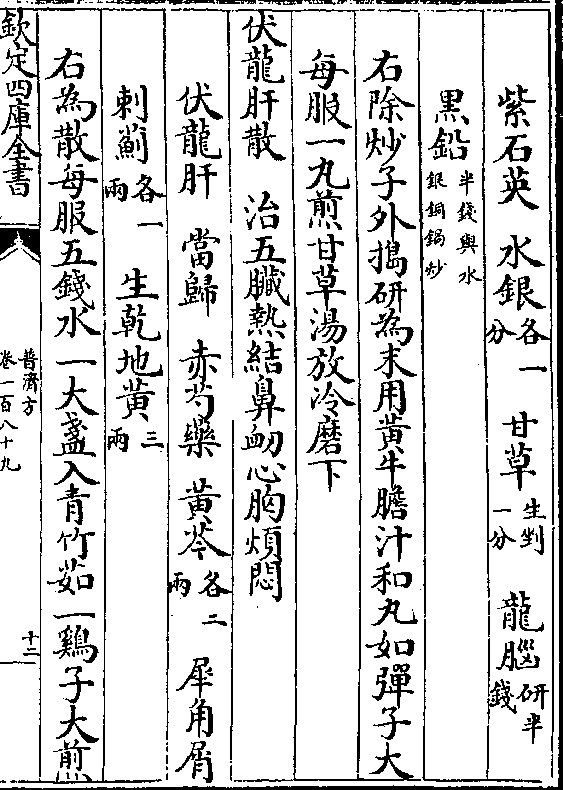 紫石英　水銀各一分　甘草生剉一分　龍腦研半錢
黑鉛半錢與水銀銅鍋炒
右除炒子外搗研為末用黃牛膽汁和丸如彈子大
每服一丸煎甘草湯放冷磨下
伏龍肝散　治五臟熱結鼻衂心胸煩悶
伏龍肝　當歸　赤芍藥　黃芩各二兩　犀角屑
刺薊各一兩　生乾地黃三兩
右為散每服五錢水一大盞入青竹茹一鷄子大煎
欽定四庫全書　普濟方卷一百八十九　十二